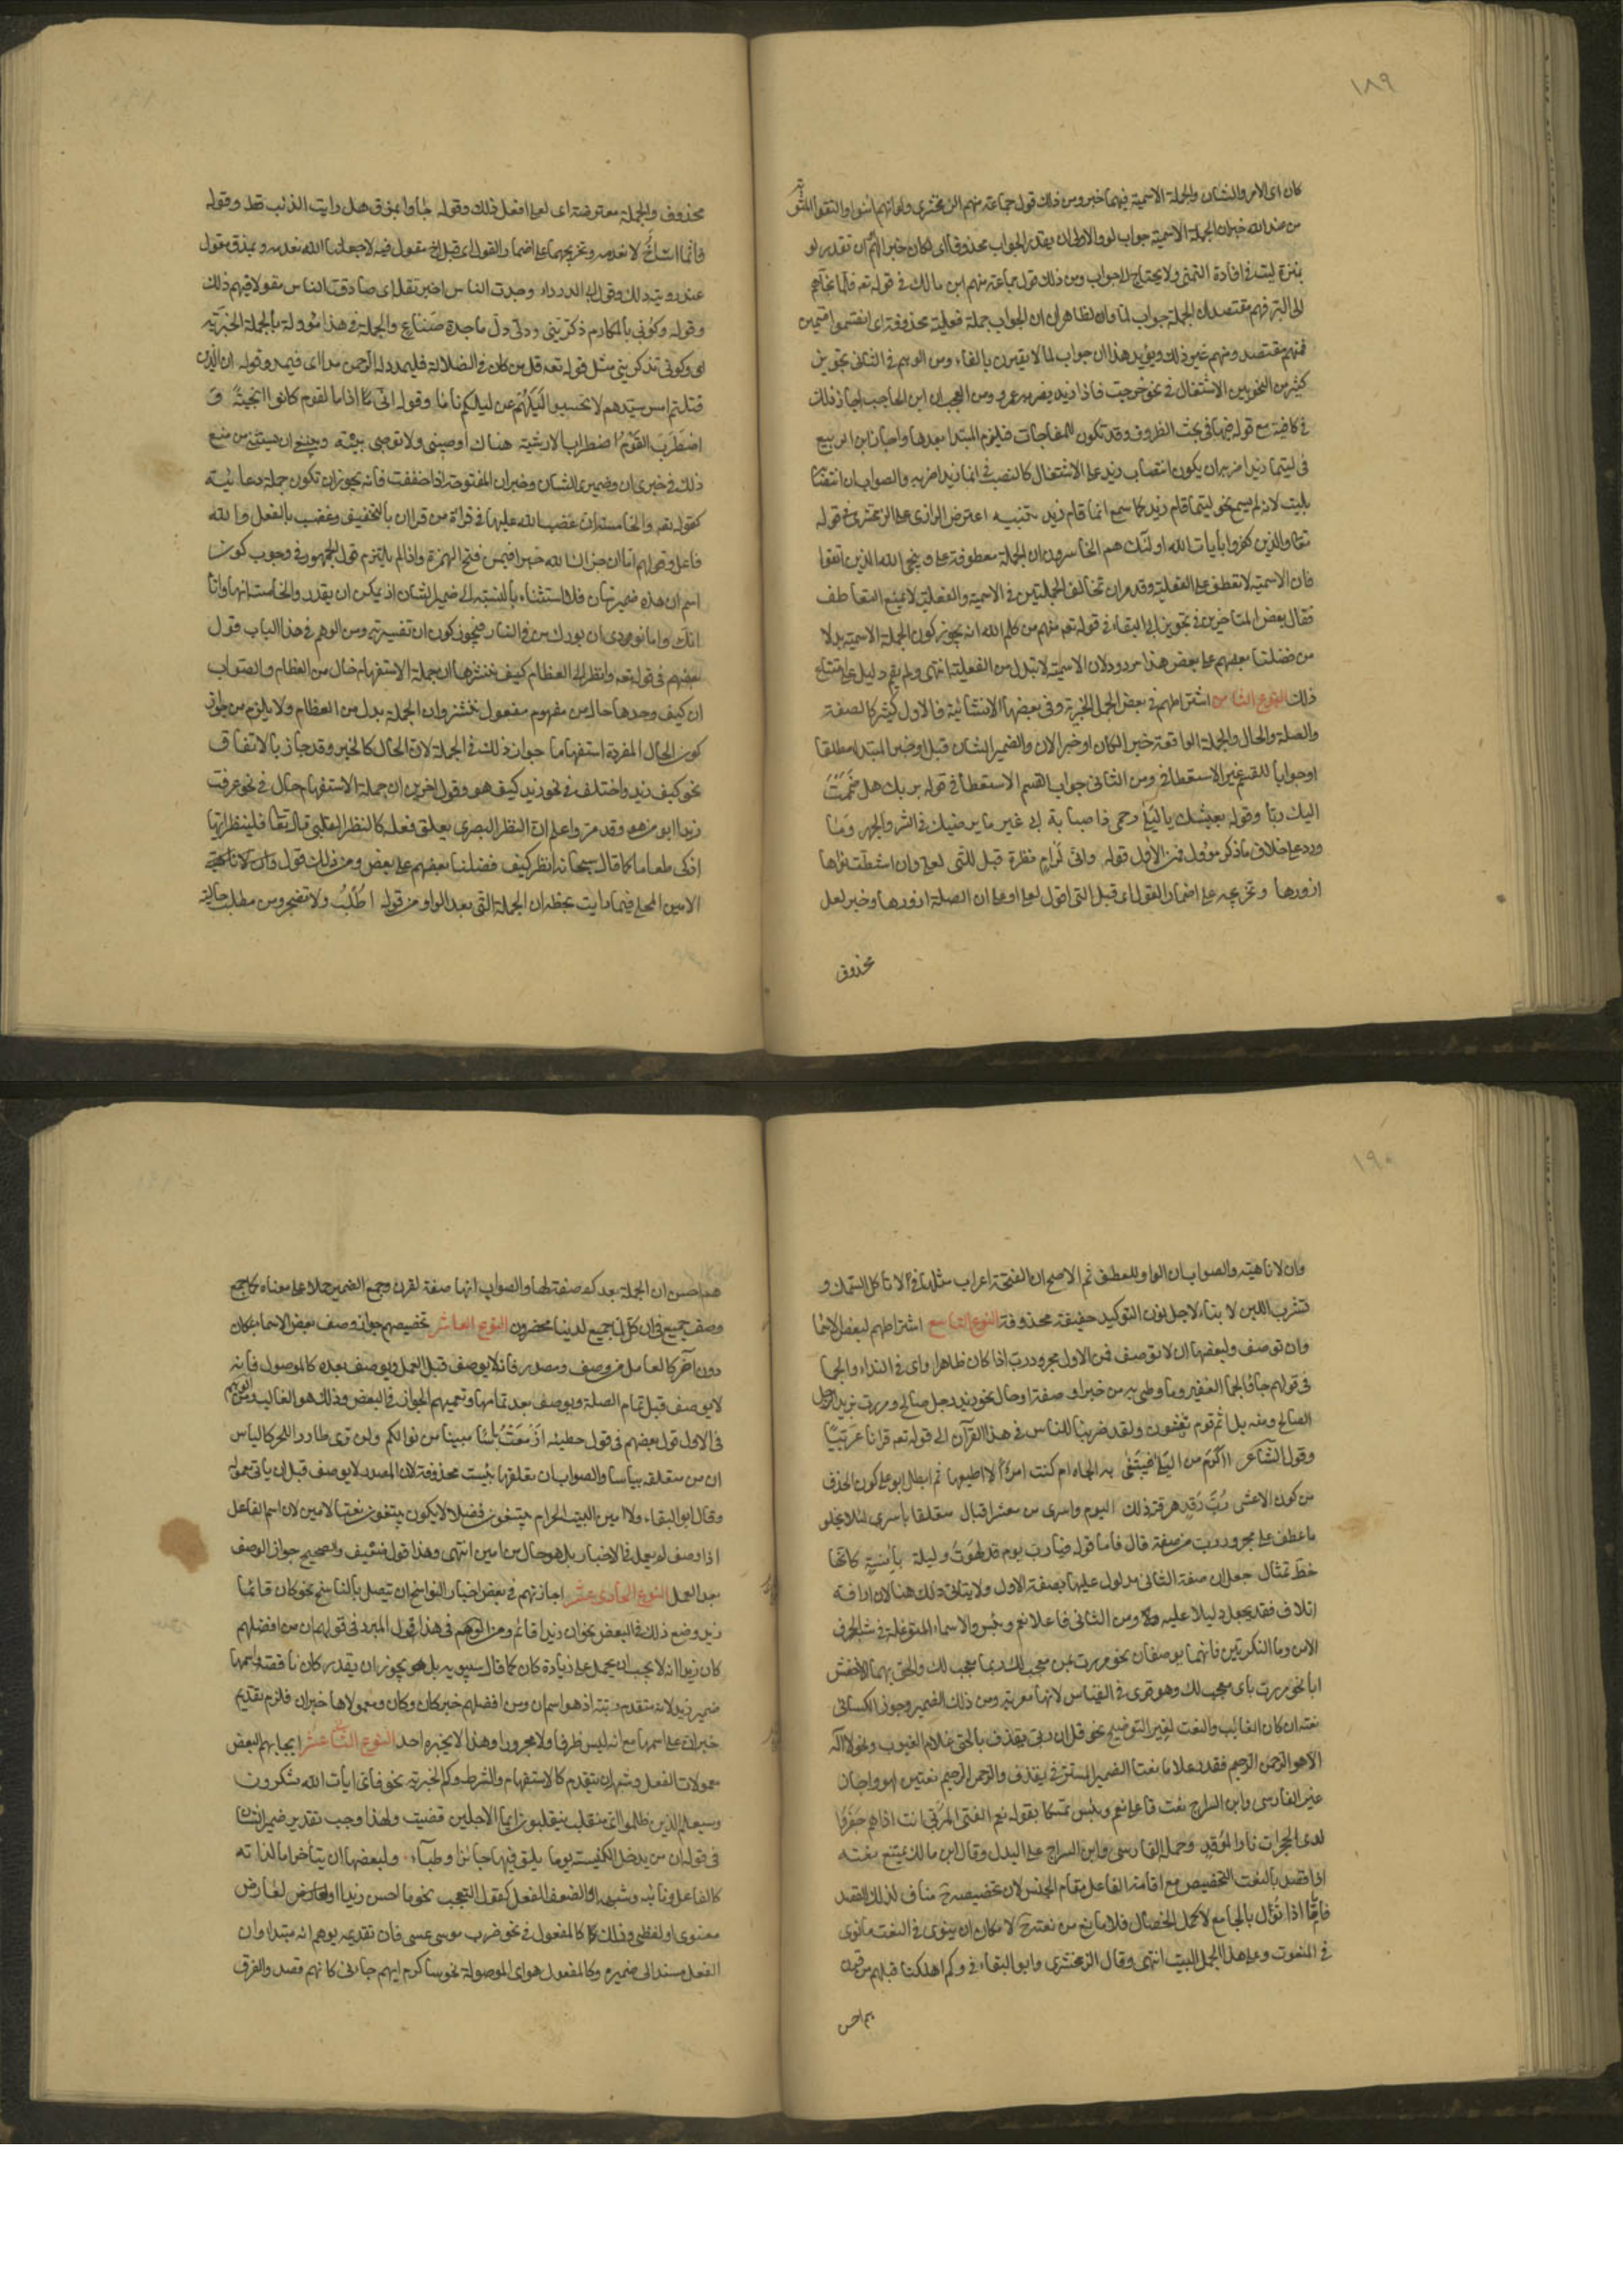 ١٨٩
كان اى الامر والشان والجملة الاسمية فيهما خبر ومن ذلك قول جماعة منهم الزمخشرى ولو انهم امنوا واتقوا لمثوبة
من عند الله خير ان الجملة الاسمية جواب لو والاولى ان يقدر الجواب محذوفا اى لكان خيرا لهم او ان تقدر لو
بمنزلة ليت فى افادة التمنى ولا يحتاج الى جواب ومن ذلك قول جماعة منهم ابن مالك فى قوله تعه فلما نجاهم
الى البر فمنهم مقتصد ان الجملة جواب لما والظاهر ان الجواب جملة فعلية محذوفة اى انقسموا قسمين
فمنهم مقتصد ومنهم غير ذلك ويؤيد هذا ان جواب لما لا يقترن بالفاء ومن الوهم فى الثانى تجويز
كثير من النحويين الاشتغال فى نحو خرجت فاذا زيد يضربه عمرو ومن العجب ان ابن الحاجب اجاز ذلك
فى كافيته مع قوله فيها فى بحث الظروف وقد تكون للمفاجات فيلزم المبتدا بعدها واجاز ابن ابى ربيع
فى ليتما زيدا ضربه ان يكون انتصاب زيد على الاشتغال كالنصب فى انما زيدا ضربه والصواب ان انتصابه
بليت لانه لم يسمع نحو ليتما قام زيد كما سمع انما قام زيد تنبيه اعترض الرازى على الزمخشرى فى قوله
تعا والذين كفروا بأيات الله اولئك هم الخاسرون ان الجملة معطوفة على وينجى الله الذين اتقوا
فان الاسمية لا تعطف على الفعلية وقد مر ان تخالف الجملتين فى الاسمية والفعلية لا يمنع التعاطف
فقال بعض المتاخرين فى تجويز ابى البقاء فى قوله تعه منهم من كلم الله انه يجوز كون الجملة الاسمية بدلا
من فضلنا بعضهم على بعض هذا مردود لان الاسمية لا تبدل من الفعلية انتهى ولم يقم دليل على امتناع
ذلك النوع الثامن اشتراطهم فى بعض الجمل الخبرية وفى بعضها الانشائية فالاول كثير كالصفة
والصلة والحال والجملة الواقعة خبر الكان او خبر الان والضمير الشان قيل او خبر المبتدا مطلقا
او جوابا للقسم غير الاستعطافى ومن الثانى جواب القسم الاستعطافى فى قوله بربك هل ضممت
اليك ربا وقوله بعيشك يا ليلى ارحمى ذا صبابة ابى غير ما يرضيك فى السر والجهر وما
ورد على خلاف ما ذكر مؤول فمن الاول قوله وانى لرام نظرة قبل التى لعلى وان اشطت نواها
ازورها وتخريجه على اضمار القول اى قبل التى اقول لعلى او على ان الصلة ازورها وخبر لعل
محذوف
محذوف والجملة معترضة اى لعلى افعل ذلك وقوله جاؤا بمذق هل رايت الذئب قط وقوله
فانما انت اخ لا نعدمه وتخريجهما على اضمار القول اى قيل اخ مقول فيه لا جعلنا الله نعدمه وبمذق مقول
عند رؤيته ذلك وقول ابى الدرداء وجدت الناس اخبر تقله اى صادفت الناس مقولا فيهم ذلك
وقوله وكونى بالمكارم ذكرينى ودلى دل ماجدة صناع والجملة فى هذا مؤولة بالجملة الخبرية
اى وكونى تذكرينى مثل قوله تعه قل من كان فى الضلالة فليمدد له الرحمن مدا اى فيمد وقوله ان الذين
قتلتم امس سيدهم لا تحسبوا ليلهم عن ليلكم ناما وقوله انى اذا ما القوم كانوا انجية و
اضطرب القوم اضطراب الارشية هناك اوصينى ولا توصى بيه وينبغى ان يستثنى من منع
ذلك فى خبرى ان وضميرى الشان وخبر ان المفتوحة اذا خففت فانه يجوز ان تكون جملة دعائية
كقوله تعه والخامسة ان غضب الله عليها فى قرائة من قرا ان بالتخفيف وغضب بالفعل والله
فاعل وقولهم اما ان جزاك الله خيرا فيمن فتح الهمزة واذا لم يلتزم قول الجمهور فى وجوب كون
اسم ان هذه ضمير شان فلا استثناء بالنسبة الى ضمير الشان اذ يمكن ان يقدر والخامسة انها واما
انك واما نودى ان بورك من فى النار فيجوز كون ان تفسيرية ومن الوهم فى هذا الباب قول
بعضهم فى قوله تعه وانظر الى العظام كيف ننشزها ان جملة الاستفهام حال من العظام والصواب
ان كيف وحدها حال من مفعول ننشز وان الجملة بدل من العظام ولا يلزم من جواز
كون الحال المفردة استفهاما جواز ذلك فى الجملة لان الحال كالخبر وقد جاز بالاتفاق
نحو كيف زيد واختلف فى نحو زيد كيف هو وقول اخرين ان جملة الاستفهام حال فى نحو عرفت
زيدا ابو من هو وقد مر واعلم ان النظر البصرى يعلق فعله كالنظر القلبى قال تعا فلينظر ايها
ازكى طعاما كما قال سبحانه انظر كيف فضلنا بعضهم على بعض ومن ذلك قول
الامين المحلى فيما رايت بخطه ان الجملة التى بعد الواو من قوله اطلب ولا تضجر من مطلب حالية
١٩٠
وان لا ناهية والصواب ان الواو للعطف ثم الاصح ان الفتحة اعراب مثلها فى لا تاكل السمك و
تشرب اللبن لا بناء لاجل نون التوكيد خفيفة محذوفة النوع التاسع اشتراطهم لبعض الاسما
وان توصف ولبعضها ان لا توصف فمن الاول مجرور رب اذا كان ظاهرا واى فى النداء والجما
فى قولهم جاؤا الجما الغفير وما وطى به من خبر او صفة او حال نحو زيد رجل صالح ومررت بزيد الرجل
الصالح ومنه بل انتم قوم تفتنون ولقد ضربنا للناس فى هذا القرآن الى قوله تعه قرانا عربيا
وقول الشاعر ااكرم من ليلى على فتبتغى به الجاه ام كنت امرأ لا اطيعها ثم ابطل ابو على كون الحذف
من كون الاعشى رب رفد هرقته ذلك اليوم واسرى من معشر اقتال متعلقا بأسرى لئلا يخلو
ما عطف على مجرور رب من صفة قال فاما قوله فيا رب يوم قد لهوت وليلة بأنسة كانها
خط تمثال جعلى ان صفة الثانى مدلول عليها بصفة الاول ولا يتاتى ذلك هنا لان اراقة
اتلاف فقد يجعل دليلا عليه ومن الثانى فاعلا نعم وبئس والاسماء المتوغلة فى شبه الحرف
الا من وما النكرتين فانهما يوصفان نحو مررت بمن معجب لك وبما معجب لك والحق بهما الاخفش
ايا نحو مررت باى معجب لك وهو قوى فى القياس لانها معربة ومن ذلك الضمير وجوز الكسائى
نعته ان كان الغائب والنعت لغير التوضيح نحو قل ان ربى يقذف بالحق علام الغيوب ونحو لا اله
الا هو الرحمن الرحيم فقدر علام نعتا الضمير المستتر فى يقذف والرحمن الرحيم نعتين لهو واجاز
غير الفارسى وابن السراج نعت فاعل نعم وبئس تمسكا بقوله نعم الفتى المرى انت اذا هم حضروا
لدى الحجرات نار الموقد وحمله الفارسى وابن السراج على البدل وقال ابن مالك يمتنع نعته
اذا قصد بالنعت التخصيص مع اقامة الفاعل مقام الجنس لان تخصيصه ح مناف لذلك القصد
فاما اذا تؤول بالجامع لاكمل الخصال فلا مانع من نعته ح لامكان ان ينوى فى النعت ما نوى
فى المنعوت وعلى هذا يحمل البيت انتهى وقال الزمخشرى وابو البقاء فى وكم اهلكنا قبلهم من قرن
هم احسن
هم احسن ان الجملة بعد كم صفة لها والصواب انها صفة لقرن وجمع الضمير حملا على معناه كما جمع
وصف جميع فى ان كل لما جميع لدينا محضرون النوع العاشر تخصيصهم جواز وصف بعض الاسما بمكان
دون آخر كالعامل من وصف ومصدر فانه لا يوصف قبل العمل ويوصف بعده كالموصول فانه
لا يوصف قبل تمام الصلة ويوصف بعد تمامها وتعميهم الجواز فى البعض وذلك هو الغالب ومن الوهم
فى الاول قول بعضهم فى قول حطيئه ازمعت يأسا مبينا من نوالكم ولن ترى طاردا للحر كالياس
ان من متعلقة بياسا والصواب ان تعلقها بيئست محذوفة لان المصدر لا يوصف قبل ان ياتى معموله
وقال ابو البقاء ولا امين البيت الحرام يبتغون فضلا لا يكون يبتغون نعتا لامين لان اسم الفاعل
اذا وصف لم يعمل فى الاختيار بل هو حال من امين انتهى وهذا قول ضعيف والصحيح جواز الوصف
بعد العمل النوع الحادى عشر اجازتهم فى بعض اخبار النواسخ ان تتصل بالناسخ نحو كان قائما
زيد ومنع ذلك فى البعض نحو ان زيدا قائم ومن الوهم فى هذا قول المبرد فى قولهم ان من افضلهم
كان زيدا انه لا يجب ان يحمل على زيادة كان كما قال سيبويه بل هو يجوز ان يقدر كان ناقصة واسمها
ضمير زيد لانه متقدم رتبة اذ هو اسم ان ومن افضلهم خبر كان وكان ومعمولاها خبر ان فلزم تقديم
خبر ان على اسمها مع انه ليس ظرفا ولا مجرورا وهذا لا يجيزه احد النوع الثانى عشر ايجابهم لبعض
معمولات الفعل وشبهه ان يتقدم كالاستفهام والشرط وكم الخبرية نحو فأى ايات الله تنكرون
وسيعلم الذين ظلموا اى منقلب ينقلبون ايما الاجلين قضيت ولهذا وجب تقدير ضمير الشان
فى قوله ان من يدخل الكنيسة يوما يلق فيها جاذرا وظباء ولبعضها ان يتأخر اما لذاته
كالفاعل ونائبه وشبهه او لضعف الفعل كمفعول التعجب نحو ما احسن زيدا او لعارض
معنوى او لفظى وذلك كالمفعول فى نحو ضرب موسى عيسى فان تقديمه يوهم انه مبتدا وان
الفعل مسند الى ضميره وكالمفعول هو اى الموصولة نحو سأكرم ايهم جاءنى كانهم قصدوا الفرق